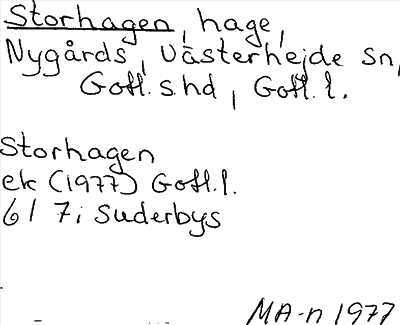 Storhagen, hage,
Nygårds, Västerhejde sn,
Gotl. s. hd, Gotl. l.
Storhagen
ek (1977) Gotl. l.
6 I 7i Suderbys
MA-n 1977